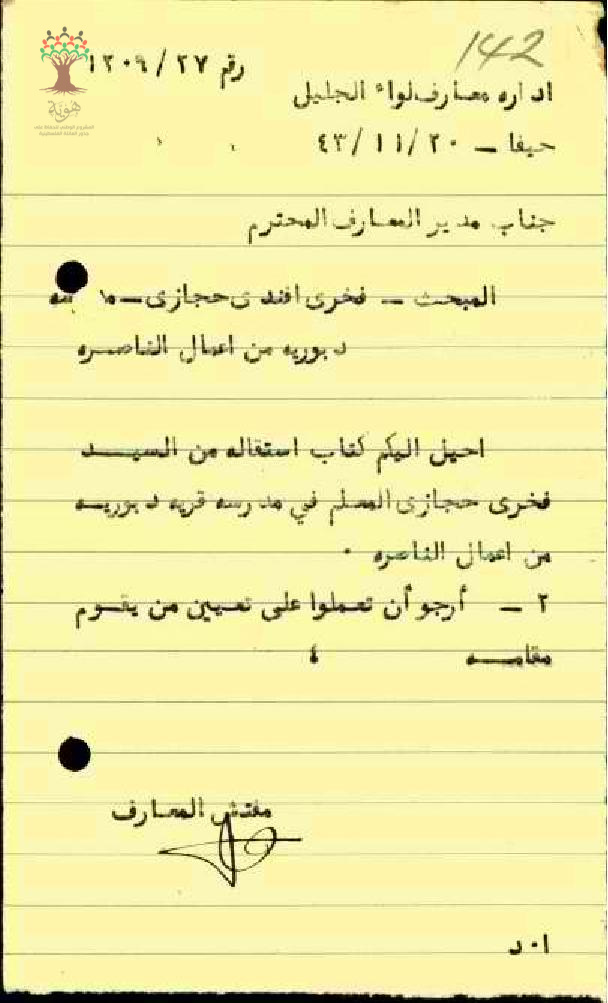 142
رقم ٢٧ / ١٢٠٩
اداره معارف لواء الجليل
حيفا — ٢٠ /١١ /٤٣
جناب مدير المعارف المحترم
المبحث — فخرى افندى حجازى —
دبوريه من اعمال الناصره
احيل اليكم كتاب استقاله من السيــد
فخرى حجازى المعلم في مدرسه قريه دبوريــه
من اعمال الناصره ٠
٢ — أرجو أن تعملوا على تعيين من يقــوم
مقامــه
مفتش المعارف
ا٠د
هوية